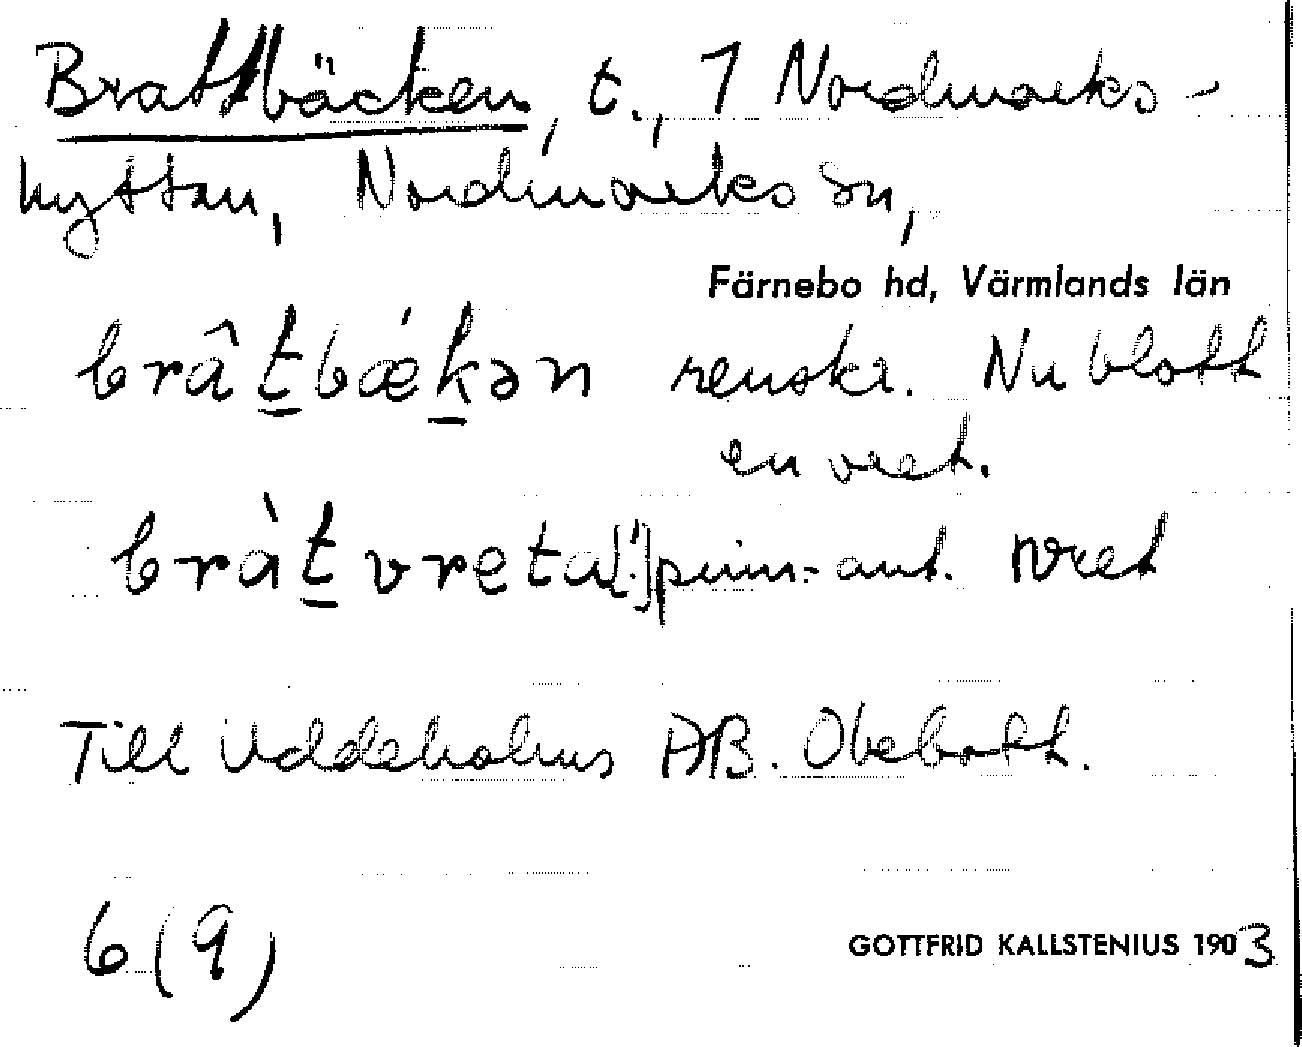 Brattbäcken, t., 1 Nordmarks-
hyttan, Nordmarks sn,
Färnebo hd, Värmlands län
brâtbǽkən renskr. Nu blott
en vret.
bràtvreta[!] prim.-ant. vret
Till Uddeholms AB. Obebott.
6 (9)
GOTTFRID KALLSTENIUS 1903